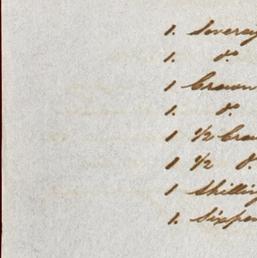 1. Soverei
1. do
1 Crown
1. do.
1 1/2 Crow
1 1/2 do.
1 Shilling
1. Sixpen